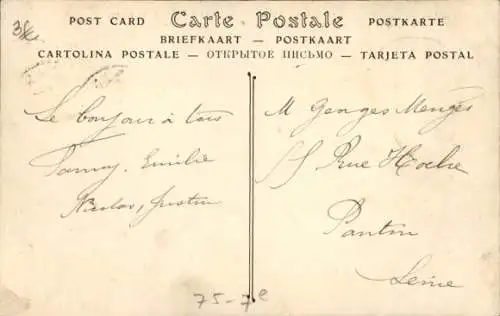 POST CARD Carte Postale POSTKARTE
BRIEFKAART — POSTKAART
CARTOLINA POSTALE — ОТКРЫТОЕ ПИСЬМО — TARJETA POSTAL
Le bonjour à tous
Fanny, Emilie
Nicolas, Justin
M Georges Menges
Rue Hoche
Pantin
Seine
75-7e